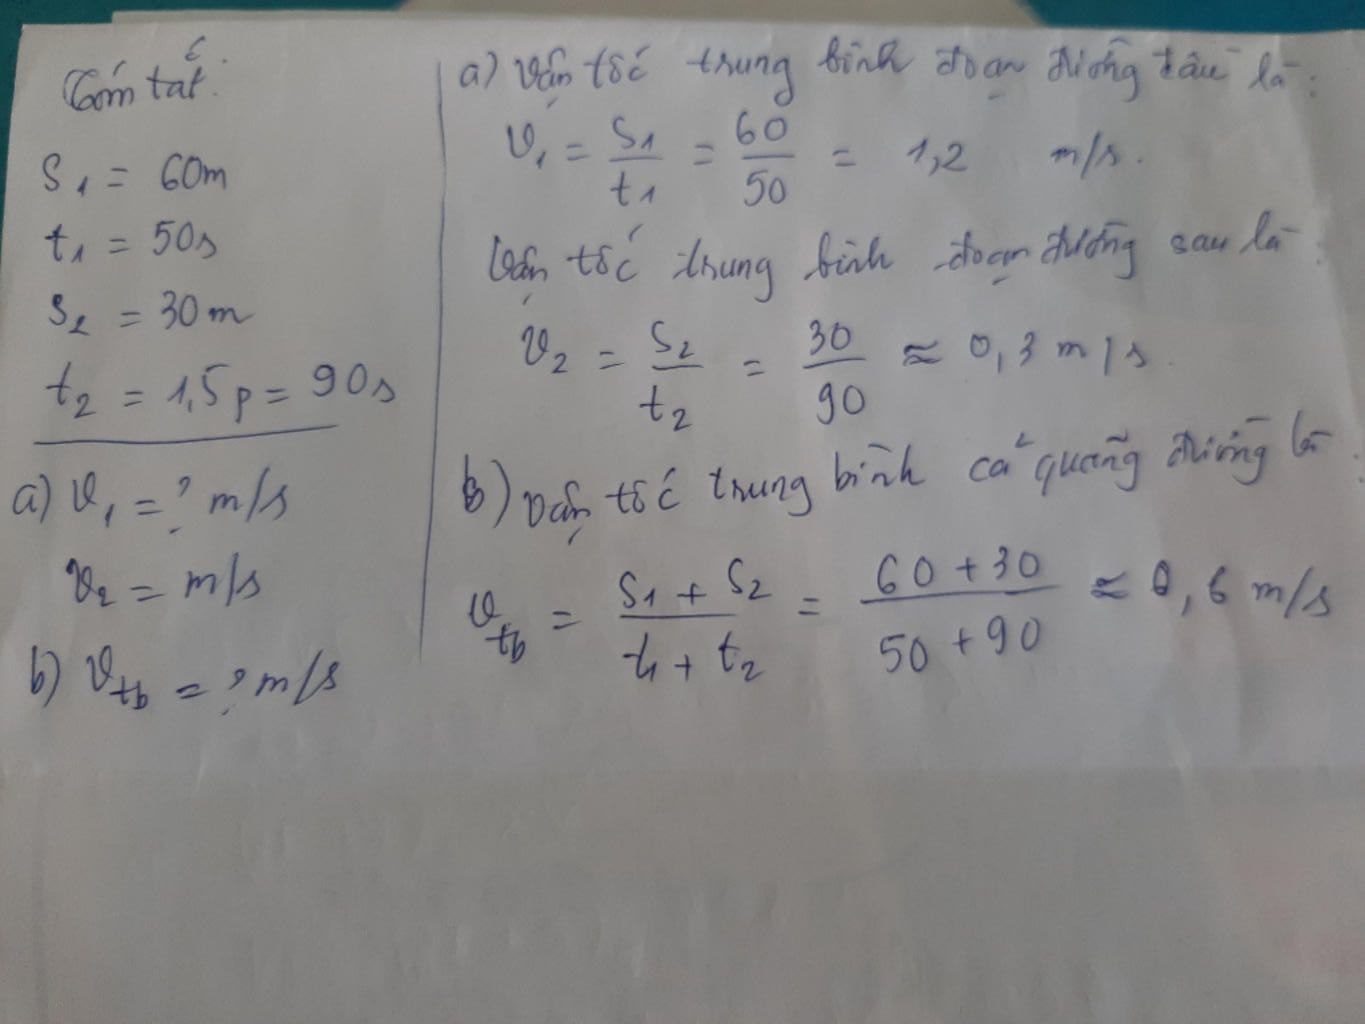 Tóm tắt:
S₁ = 60m
t₁ = 50s
S₂ = 30m
t₂ = 1,5p = 90s
a) v₁ = ? m/s
v₂ = m/s
b) v_tb = ? m/s
a) Vận tốc trung bình đoạn đường đầu là:
v₁ = S₁/t₁ = 60/50 = 1,2 m/s.
Vận tốc trung bình đoạn đường sau là:
v₂ = S₂/t₂ = 30/90 ≈ 0,3 m/s.
b) Vận tốc trung bình cả quãng đường là:
v_tb = (S₁ + S₂)/(t₁ + t₂) = (60 + 30)/(50 + 90) ≈ 0,6 m/s